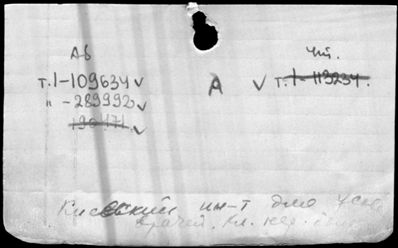 Аб
т.1-109634 v
п -289992 v
190471 v
А
Чит.
v т.1-113234.
Киевский ин-т для усов
врачей. Кл.